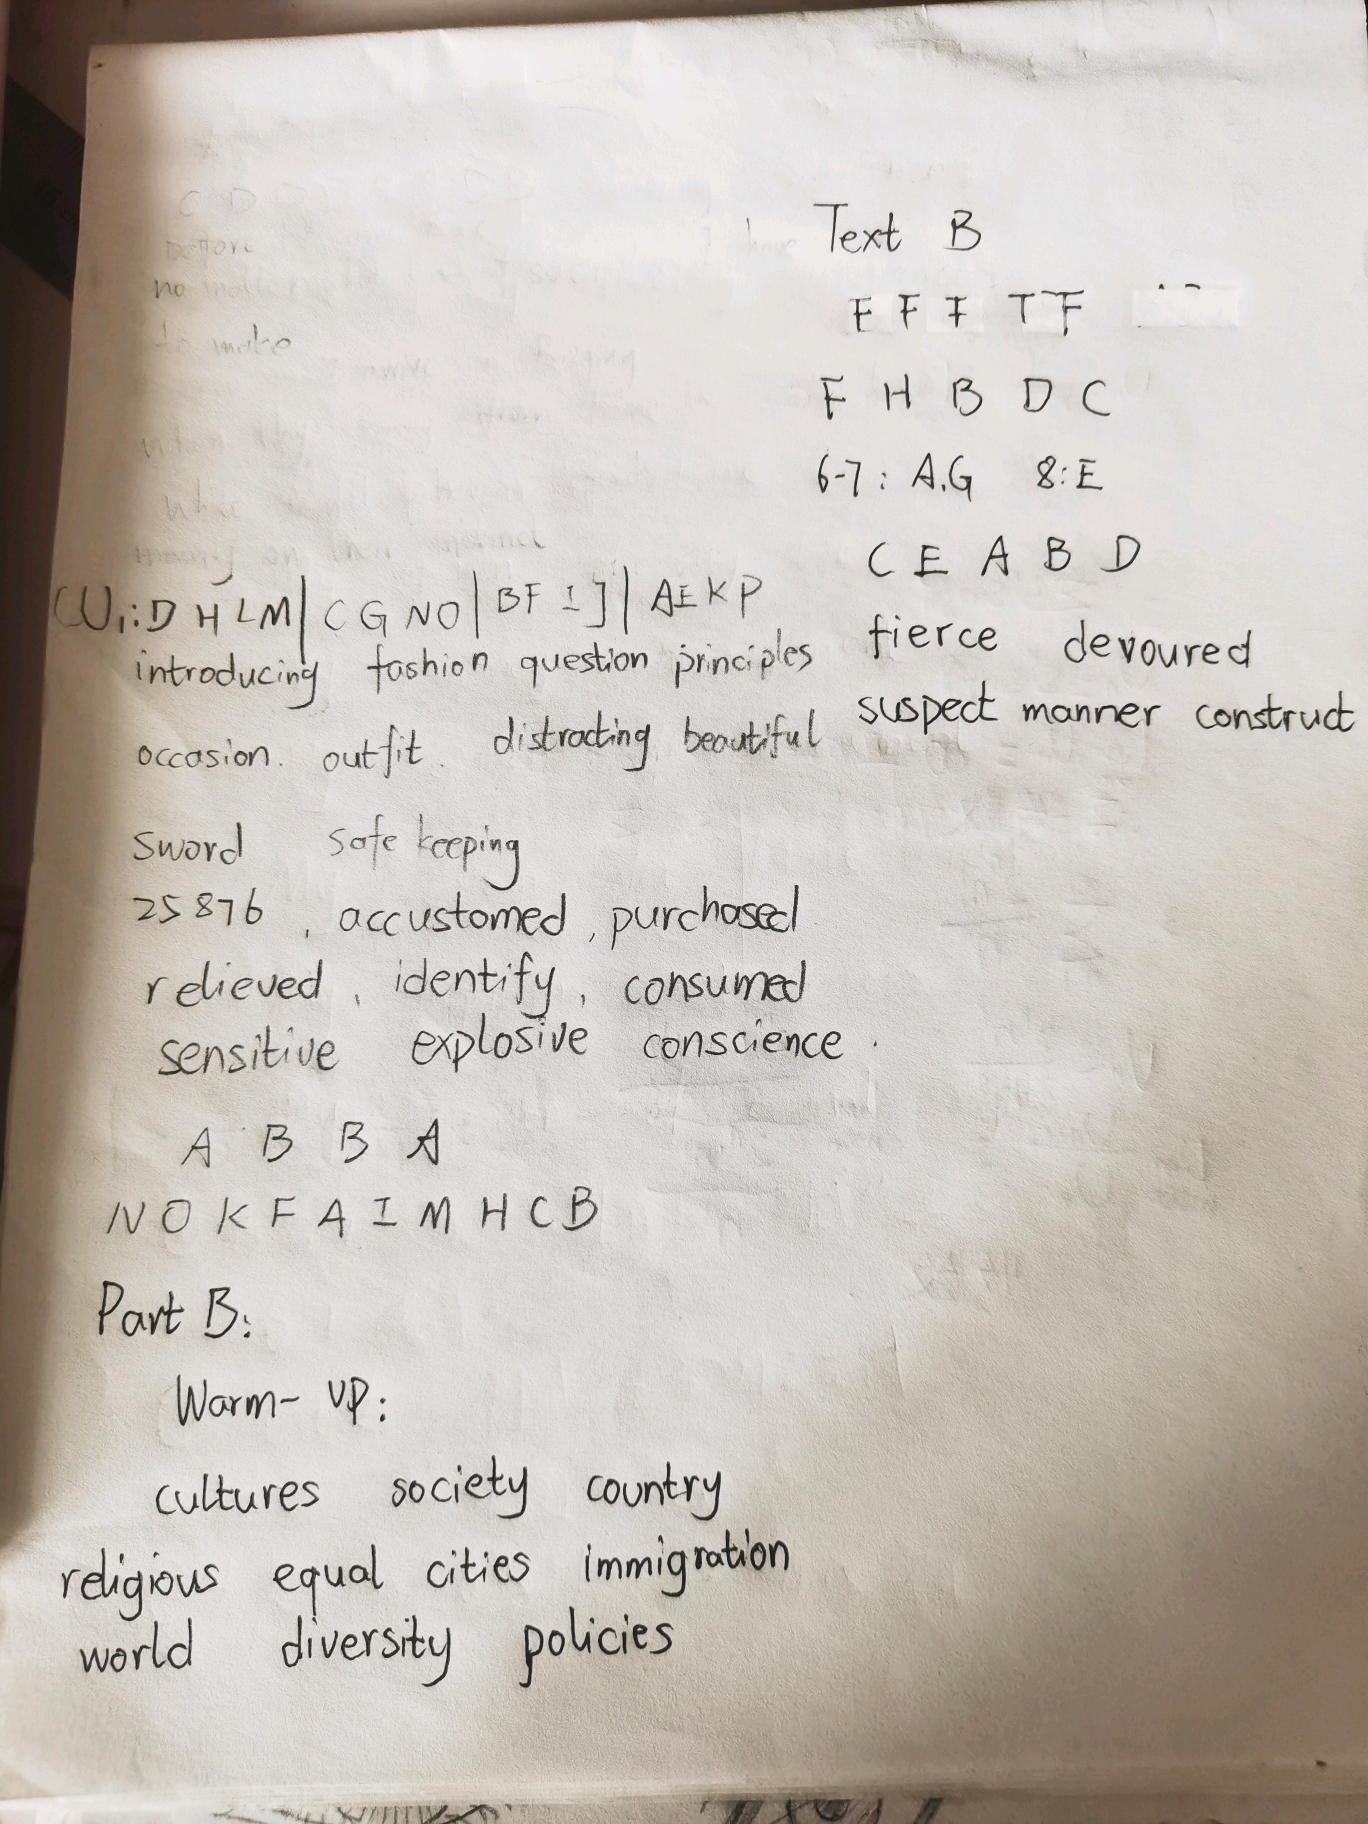 CU1: D H L M | C G N O | B F I J | A E K P
introducing fashion question principles
occasion. outfit. distracting beautiful
sword safe keeping
25876, accustomed, purchased
relieved, identify, consumed
sensitive explosive conscience.
A B B A
N O K F A I M H C B
Part B:
Warm-up:
cultures society country
religious equal cities immigration
world diversity policies
Text B
F F F T F
F H B D C
6-7: A.G 8:E
C E A B D
fierce devoured
suspect manner construct